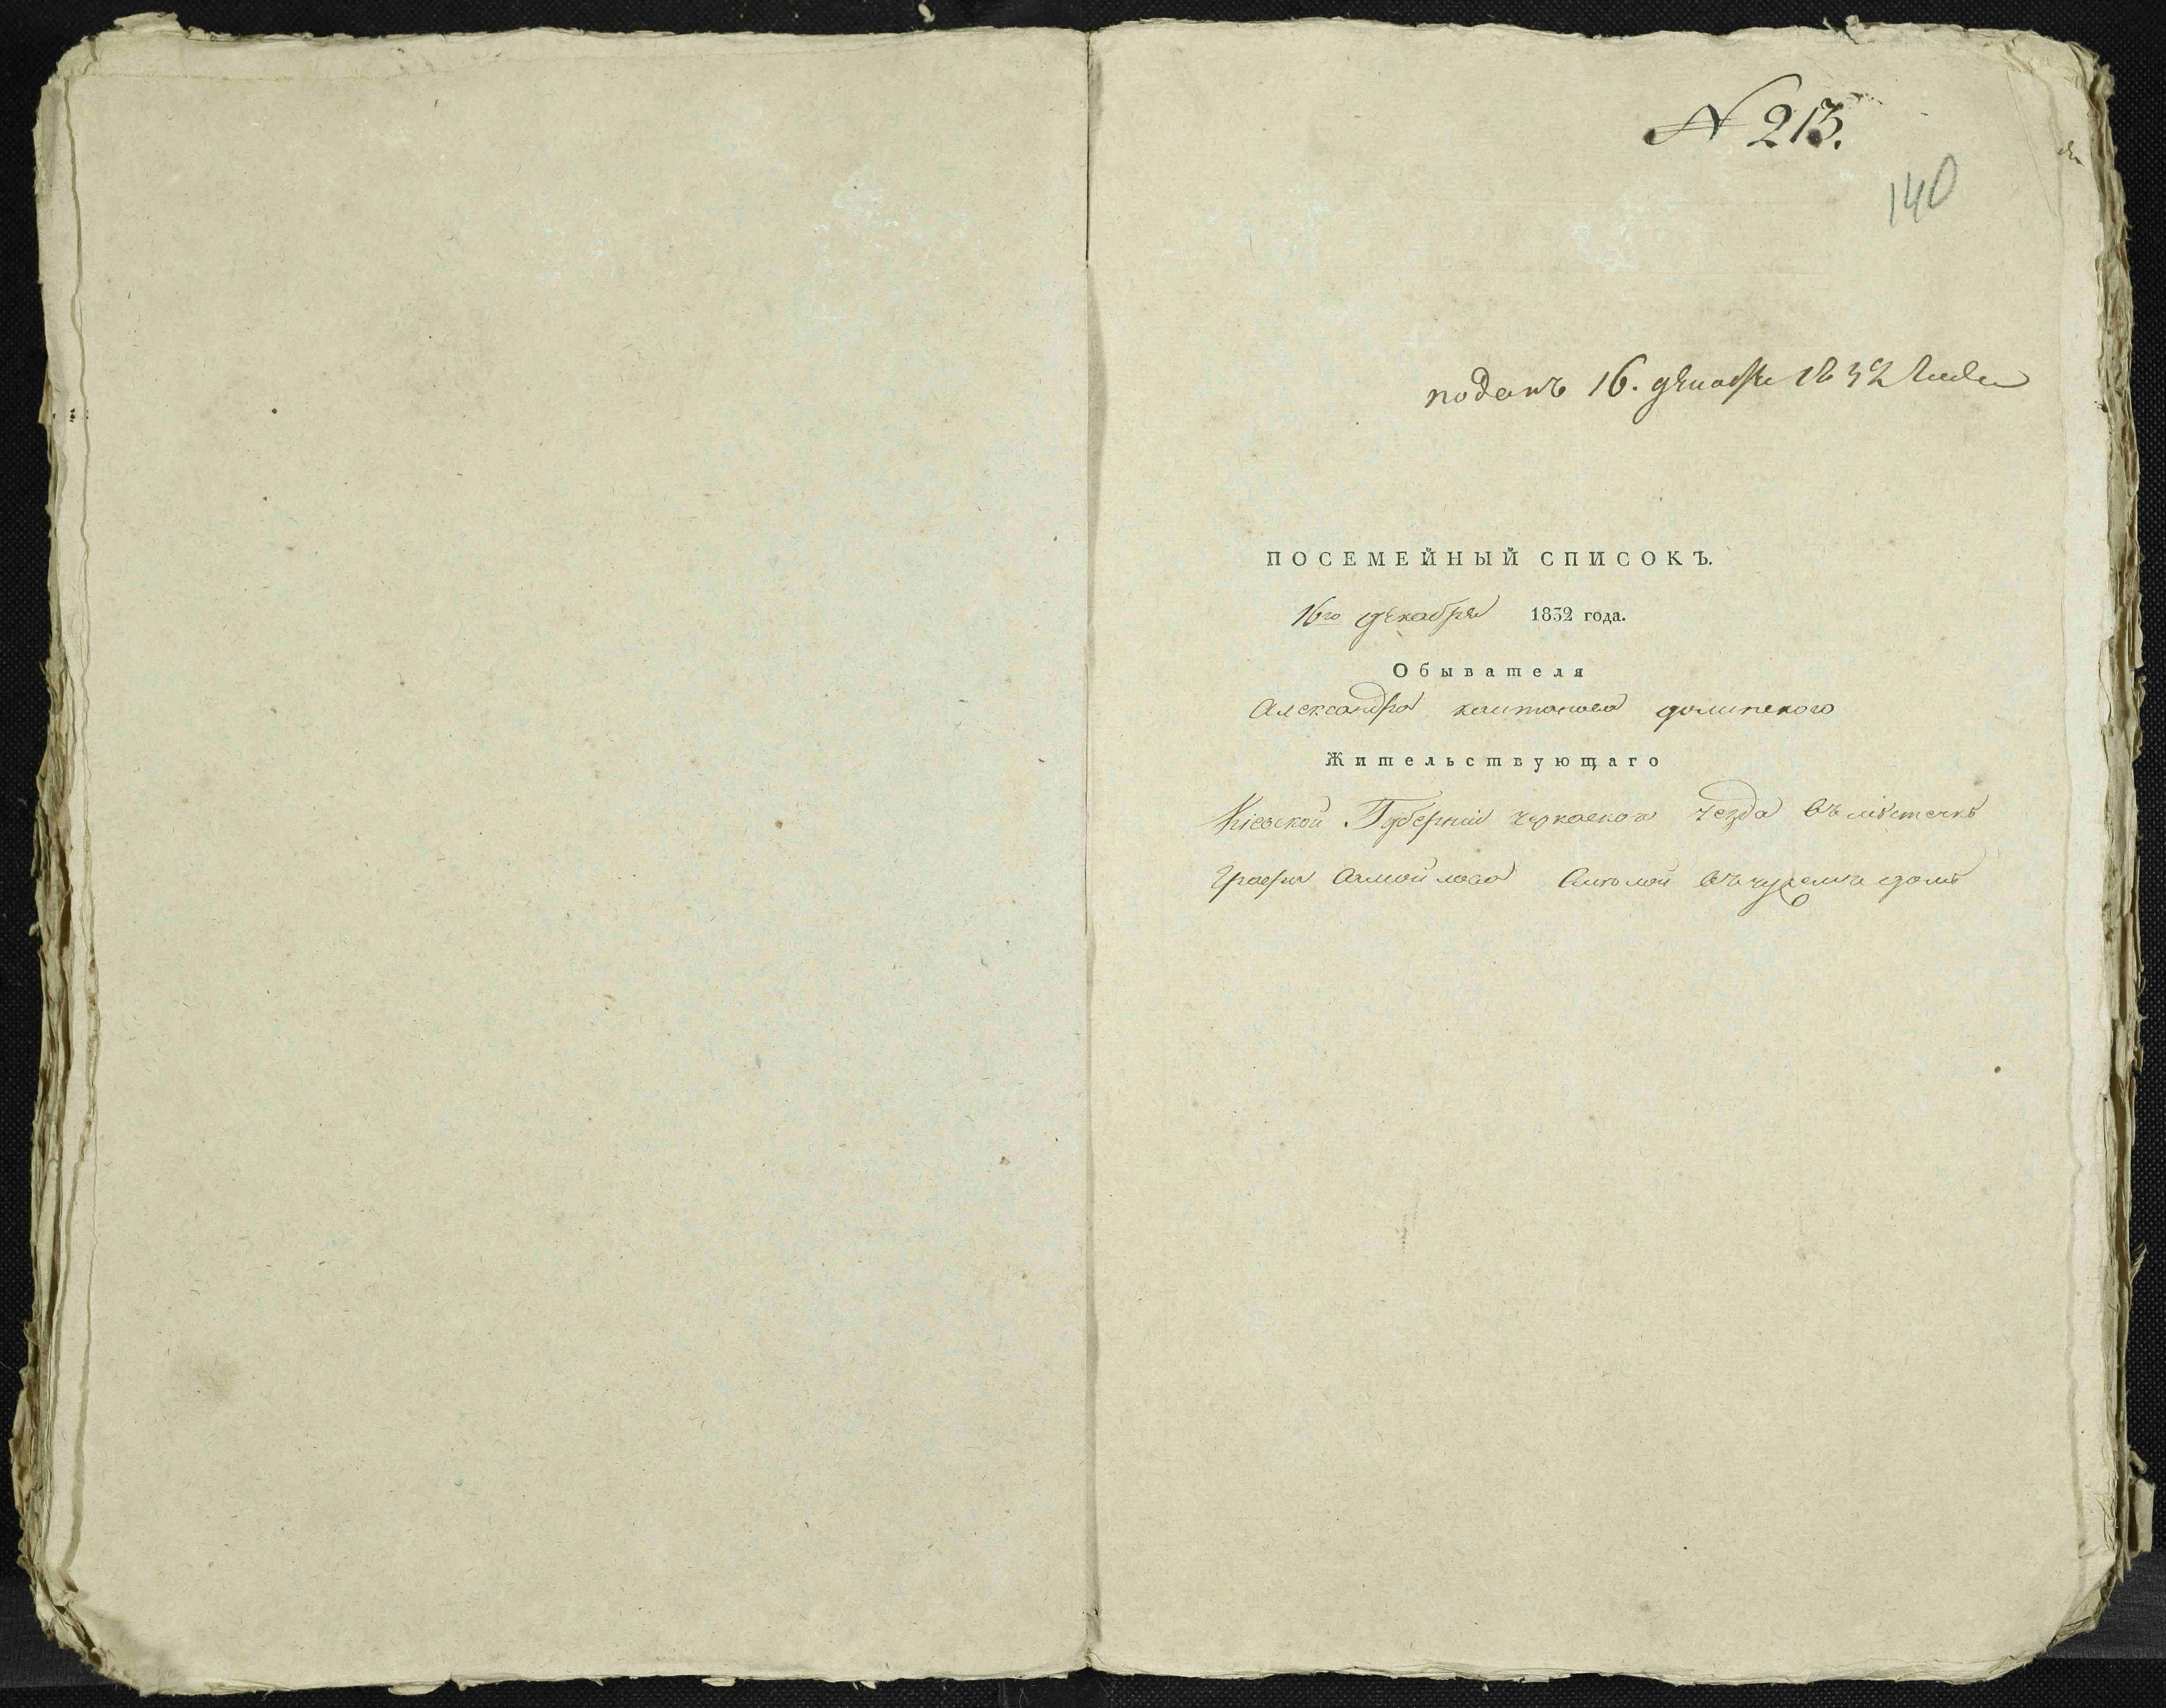 № 213.
140
поданъ 16. декабря 1832 года
ПОСЕМЕЙНЫЙ СПИСОКЪ.
16го декабря 1832 года.
Обывателя
Александра каитанова долинского
Жительствующаго
Кіевской Губерніи черкаского уезда въ мѣстечкѣ
Графа Самойлова Смѣлой въ чужемъ домѣ